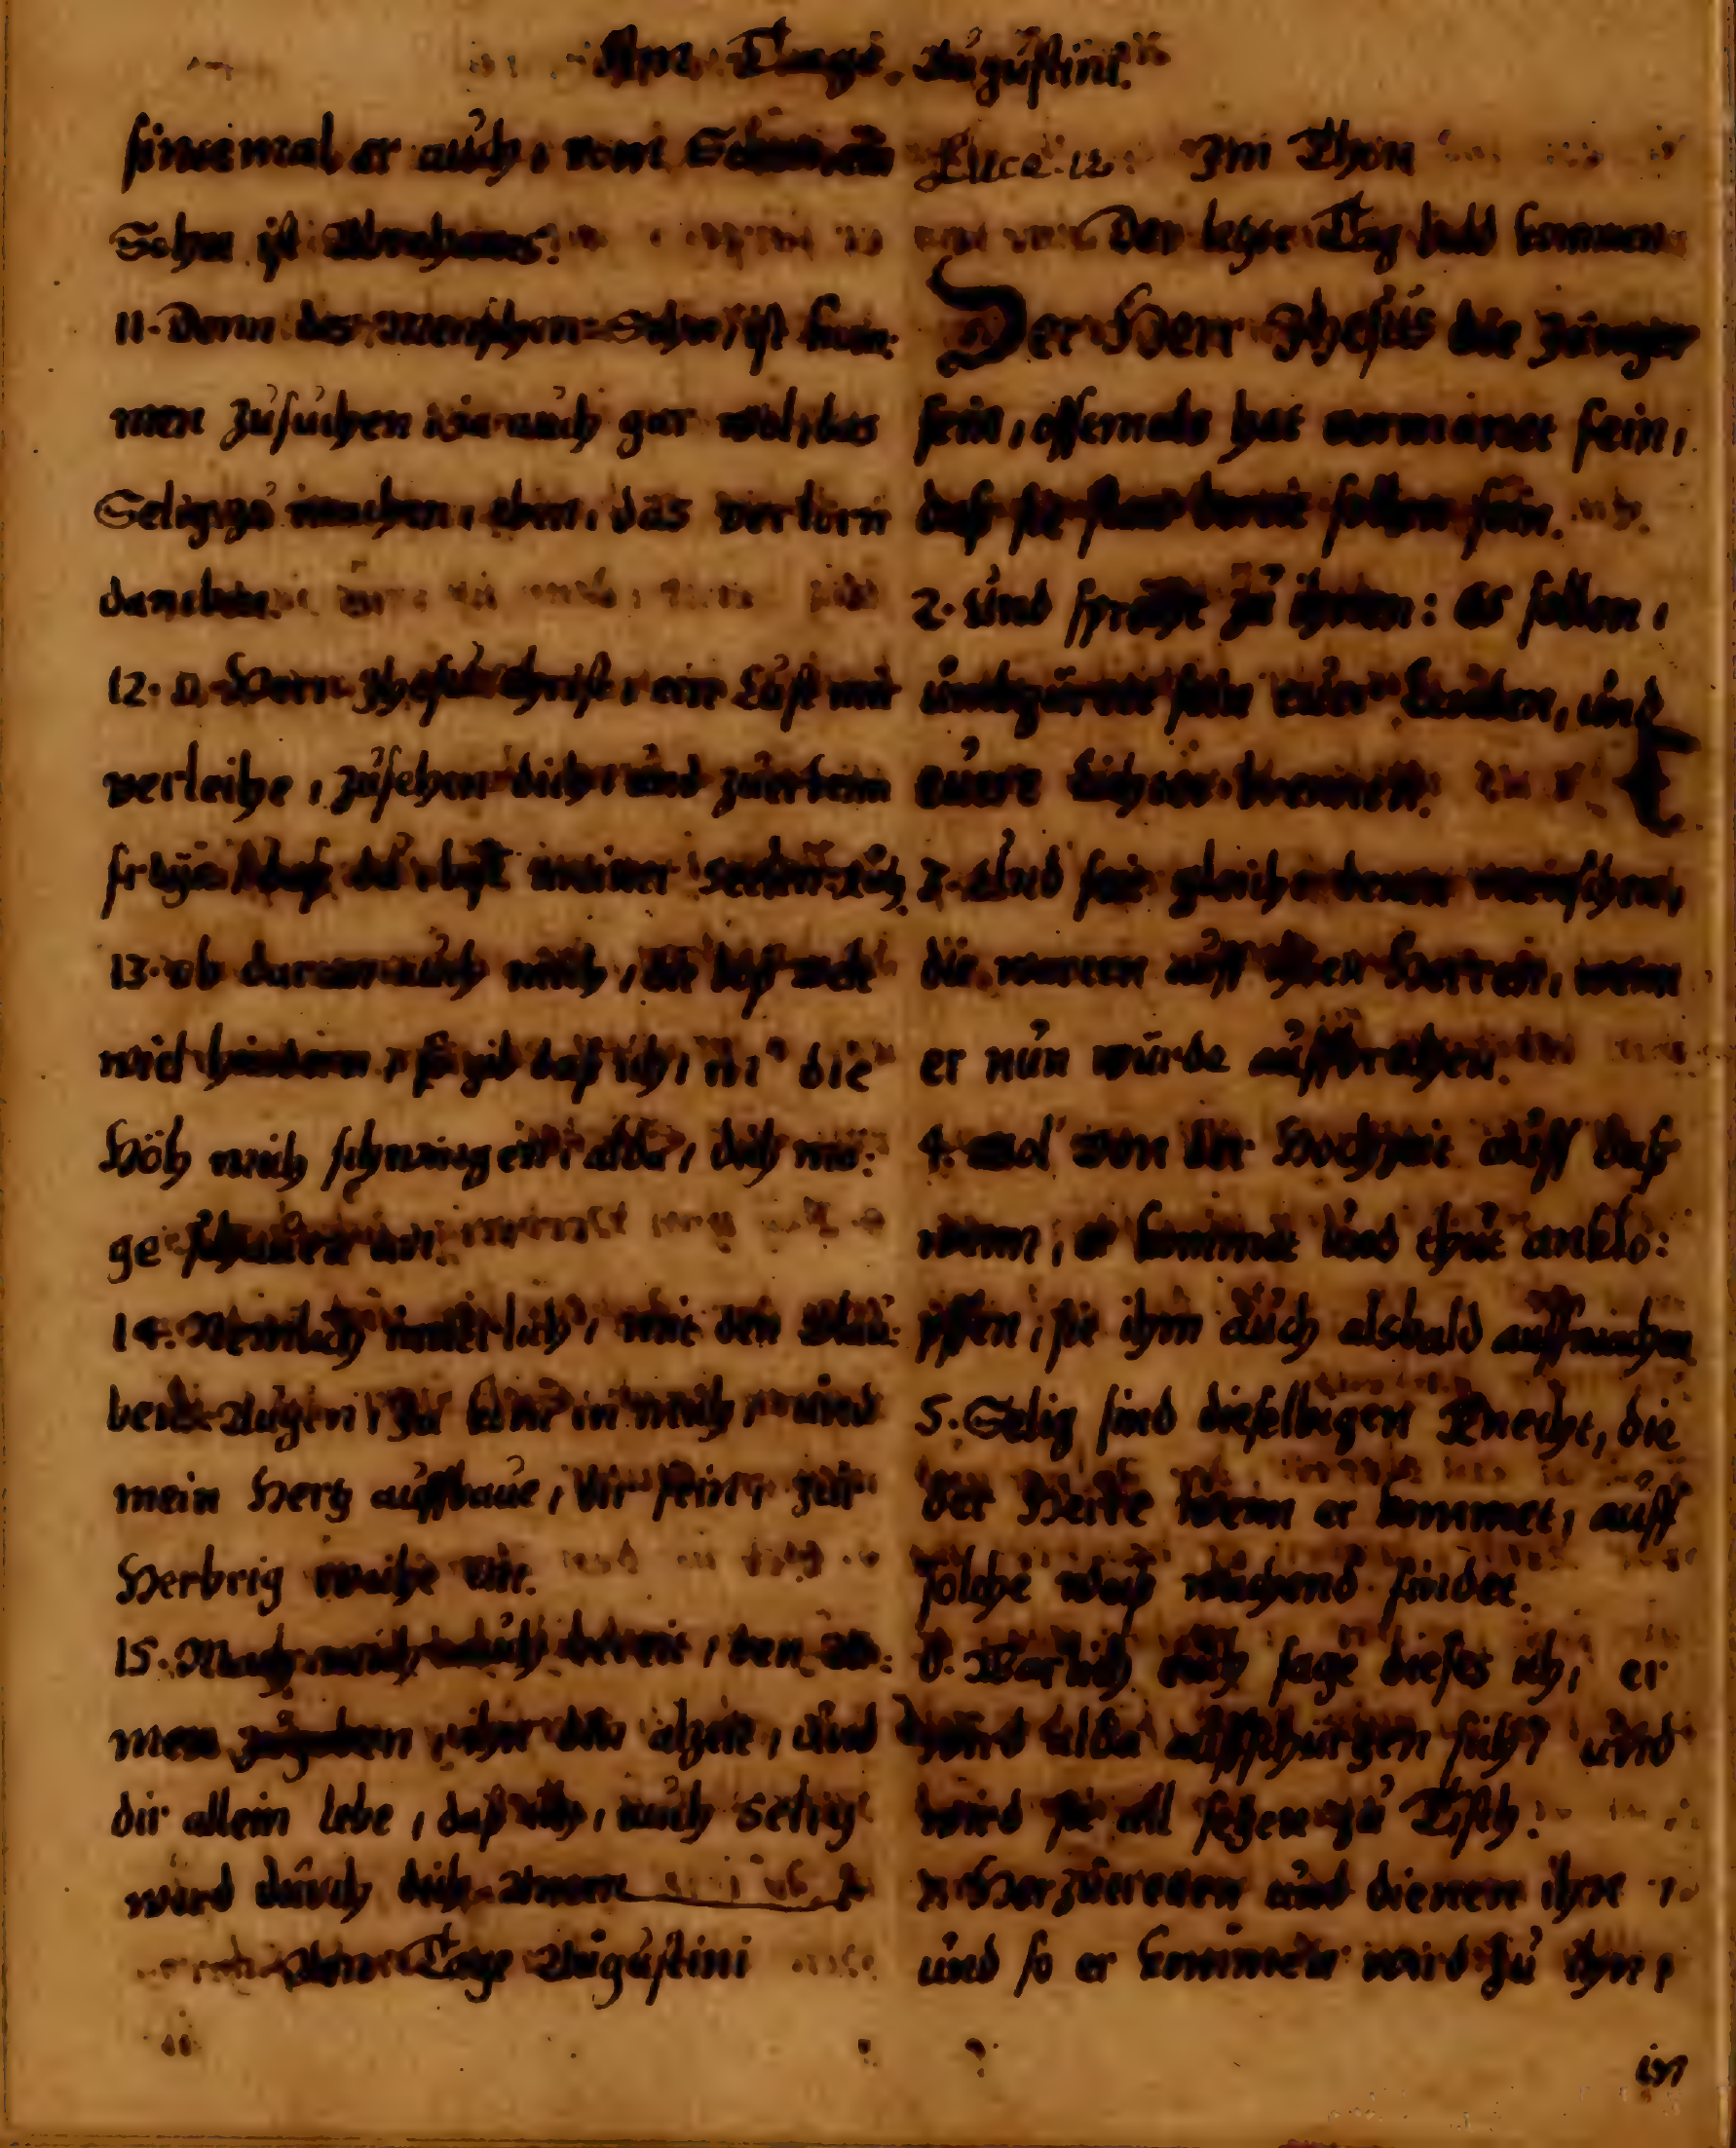 Am Tage Augustini.
sintemal er auch, vom Samen ein
Sohn ist Abrahams.
11. Denn des Menschen Sohn, ist kom:
men zusuchen wie auch gar wol, das
Selig zu machen, eben, das verlorn
daneben.
12. O Herr Jhesu Christ, ein Lust mir
verleihe, zusehen dich, und
daß du bist meiner
13. ob daran auch mich, die welt
wird hindern, so gib daß ich, in die
Höh mich schwingen, alda, dich mö:
ge schauen an.
14. Nemlich innerlich, mit den Glau:
bens Augen, in mich, und
mein Hertz auffbaue, dir fein, zur
Herbrig weihe ein.
15. Mach mich auch bereit, den Ar:
men zugeben, und
dir allein lebe, daß ich, auch Selig
werd durch dich. Amen
Am Tage Augustini
Luce. 12. Im Thon
Der letzte Tag bald kommen
Der Herr Jhesus die Jünger
sein, offtermals hat vermanet fein,
daß sie stets bereit sollen sein.
2. Und sprach zu ihnen: Es sollen,
umbgürtet sein euer Lenden, und
euere Lichter brennen.
3. Und seit gleich denen menschen,
die warten auff ihren Herren, wenn
er nun würde auffbrechen.
4. Wol von der Hochzeit auff daß
wenn, er kommet und thut anklo:
pffen, sie ihm auch alsbald auffmachen
5. Selig sind dieselbigen Knecht, die
der Herre wenn er kommet, auff
solche weiß wachend findet.
6. Warlich euch sage dieses ich, er
wird alda auffschürtzen sich, und
wird sie all setzen zu Tisch.
Herzutreten und dienen ihn,
und so er kommen wird zu ihn,
in